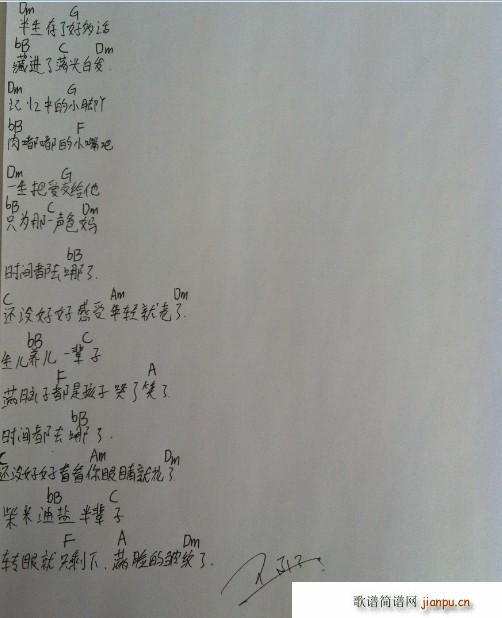 Dm G
半生存了好多话
bB C Dm
藏进了满头白发
Dm G
记忆中的小脚丫
bB F
肉嘟嘟的小嘴吧
Dm G
一生把爱交给他
bB C Dm
只为那一声爸妈
bB
时间都去哪了
C Am Dm
还没好好感受年轻就老了
bB C
生儿养儿一辈子
F A
满脑子都是孩子哭了笑了
bB
时间都去哪了
C Am Dm
还没好好看看你眼睛就花了
bB C
柴米油盐半辈子
F A Dm
转眼就只剩下满脸的皱纹了
歌谱简谱网 jianpu.cn